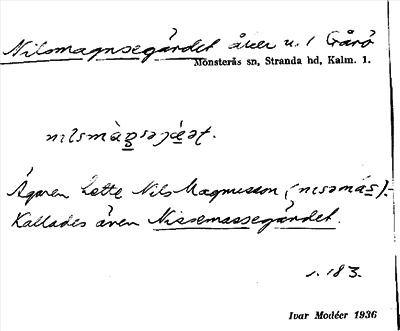 Nilsmagnsegärdet åker u. 1 Gårö
Mönsterås sn, Stranda hd, Kalm. 1.
Ägaren hette Nils Magnusson
Kallades även Nissemassegärdet.
1. 183.
Ivar Modéer 1936